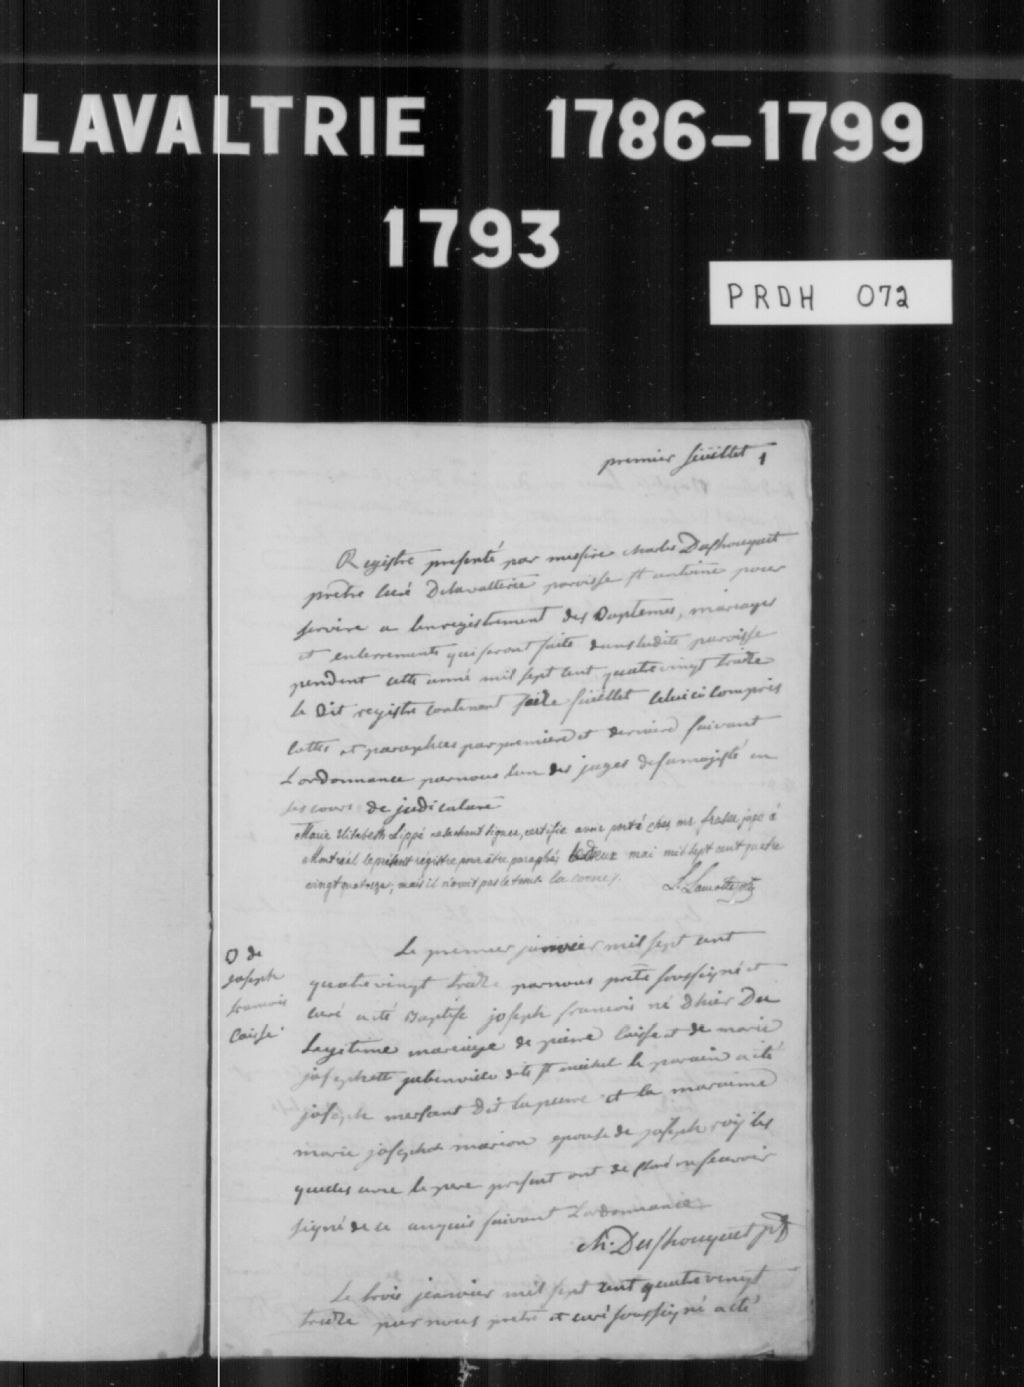 LAVALTRIE 1786-1799
1793
PRDH 072
premier feüillet 1
Registre presenté par messire Charles Dufhouquet
prêtre curé Delavalterie paroisse st antoine pour
servire a lenregistrement des Baptemes, mariages
et enterrements qui seront faits dans ladite paroisse
pendent cette anné mil sept cent quatrevingt treize
le dit registre contenant feüillet celuici compris
cottes et paraphées par premiere et derniere suivant
L'ordonnance par nous lun des juges de sa majesté en
ses cours de judicature
Marie Elisabeth Lippé ne sachant signer, certifie avoir porté chez mr fraser juge à
Montréal le présent régistre pour être paraphé, le deux mai mil sept cent quatre
vingt quatorze, mais il n'avoit pas le tems.
L. Lamotte ptr
Le premier janvier mil sept cent
quatrevingt treize par nous prêtre soussigné et
curé a eté Baptise joseph francois né d'hier Du
Legitime mariage de piere Caisse et de marie
josephette st michel le parain a eté
joseph mersant Dit lapierre et la maraine
marie josephe marion epouse de joseph roy les
quels avec le pere présent ont declaré ne scavoir
signé de ce enquis suivant L'ordonnance
B de
joseph
francois
Caisse
Ch. Dufhouquet ptr
Le trois janvier mil sept cent quatrevingt
treize par nous prêtre et curé soussigné a eté